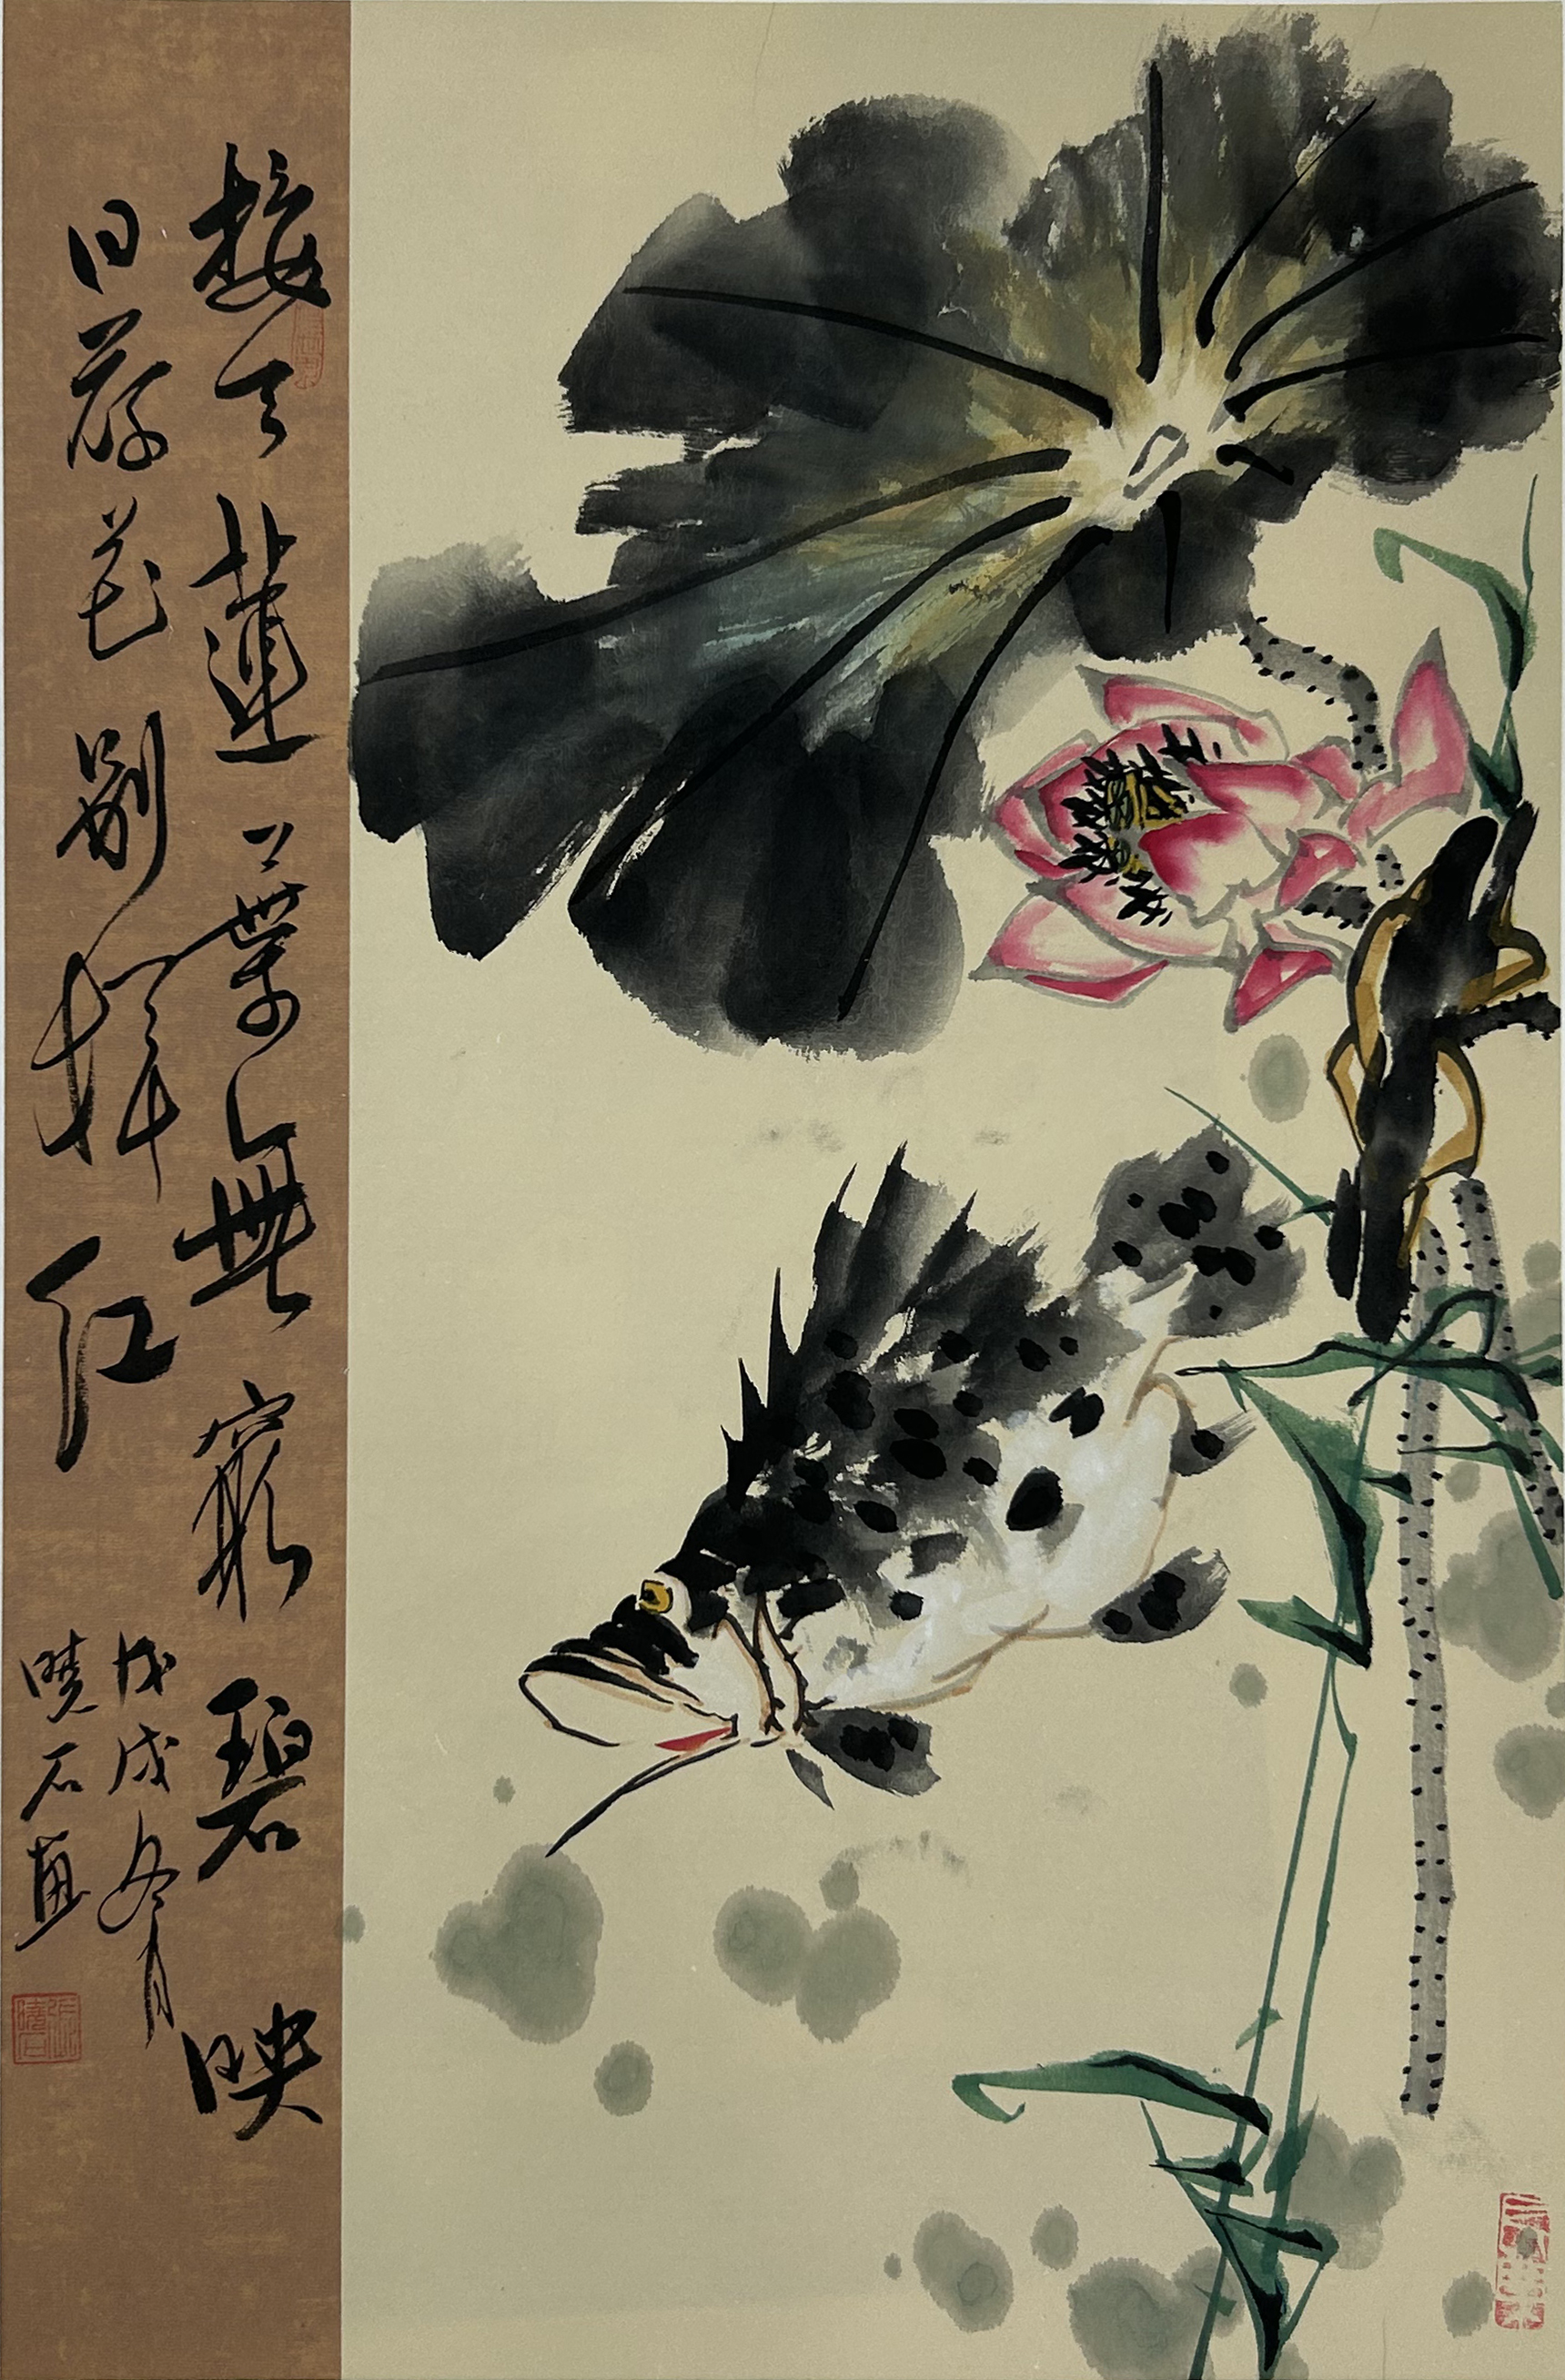 接天蓮葉無窮碧映
日荷花別樣紅
戊戌冬月
曉石畫